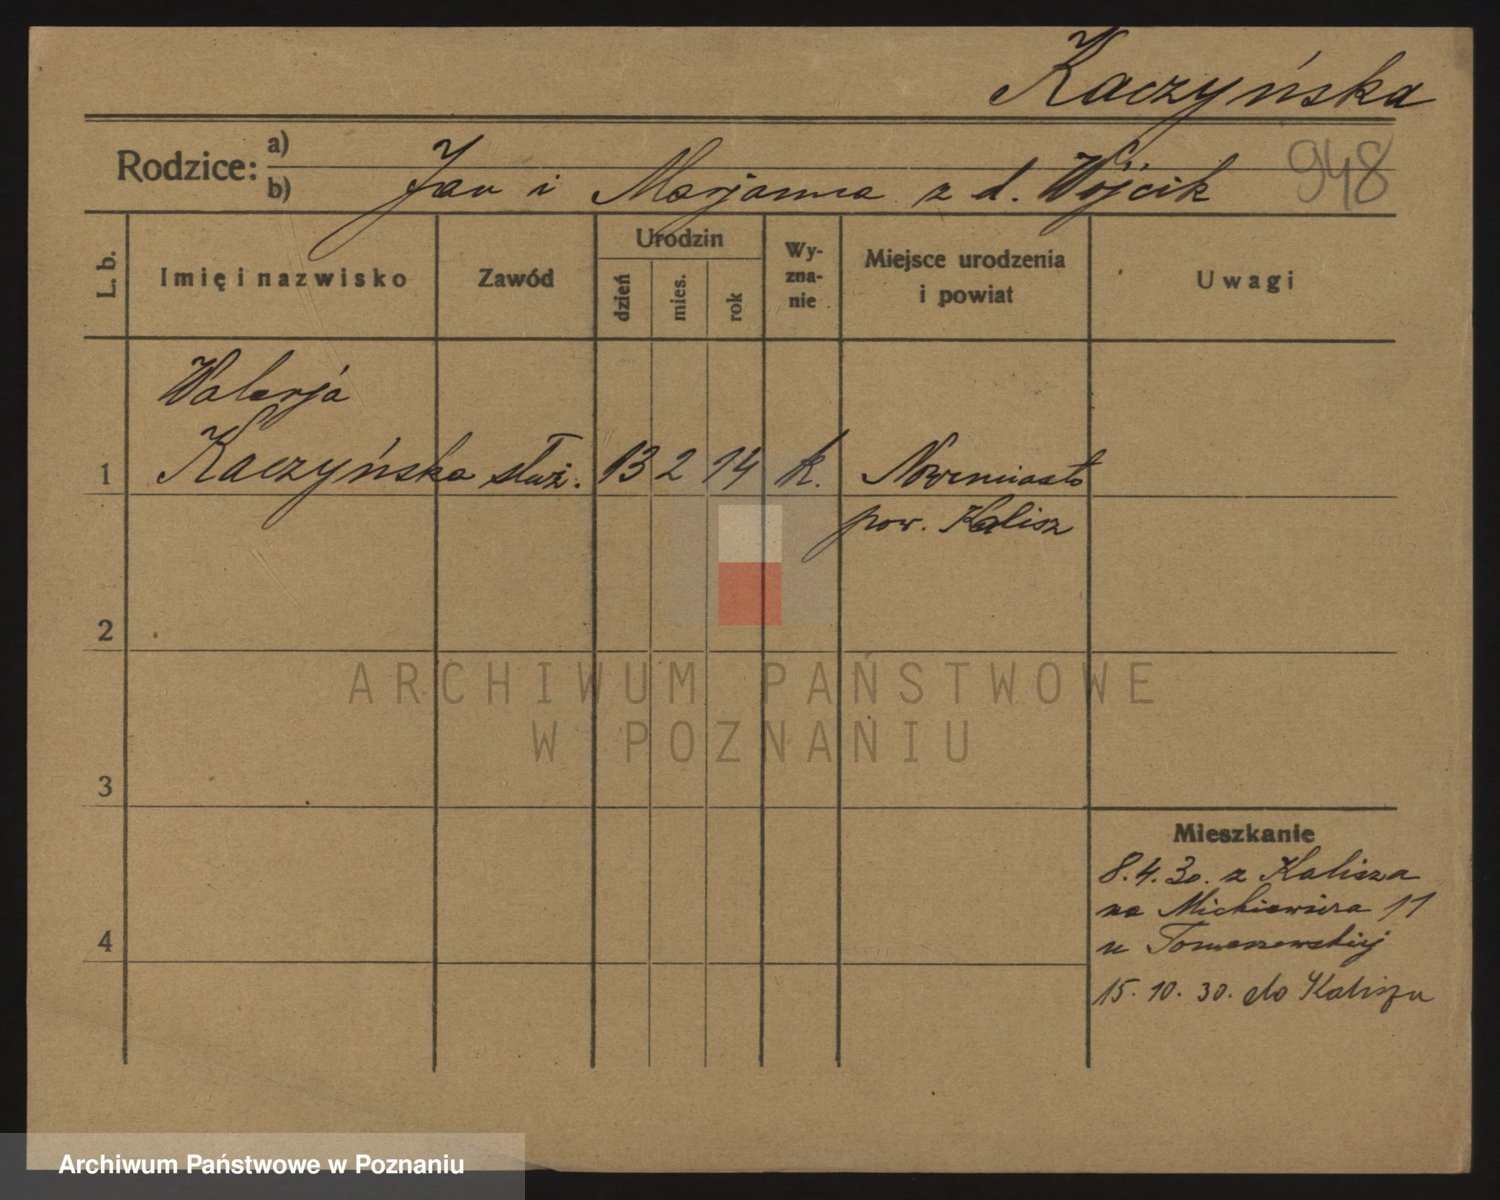 Kaczyńska
Rodzice: a)
b) Jan i Marjanna z d. Wójcik 948
L. b.
Imię i nazwisko
Zawód
Urodzin
dzień
mies.
rok
Wy-
zna-
nie
Miejsce urodzenia
i powiat
Uwagi
Walerja
1 Kaczyńska służ. 13 2 14 k. Nowemiasto
pow. Kalisz
2
ARCHIWUM PAŃSTWOWE
W POZNANIU
3
Mieszkanie
8.4.30. z Kalisza
na Mickiewicza 11
u Tomaszewskiej
4
15. 10. 30. do Kalisza
Archiwum Państwowe w Poznaniu